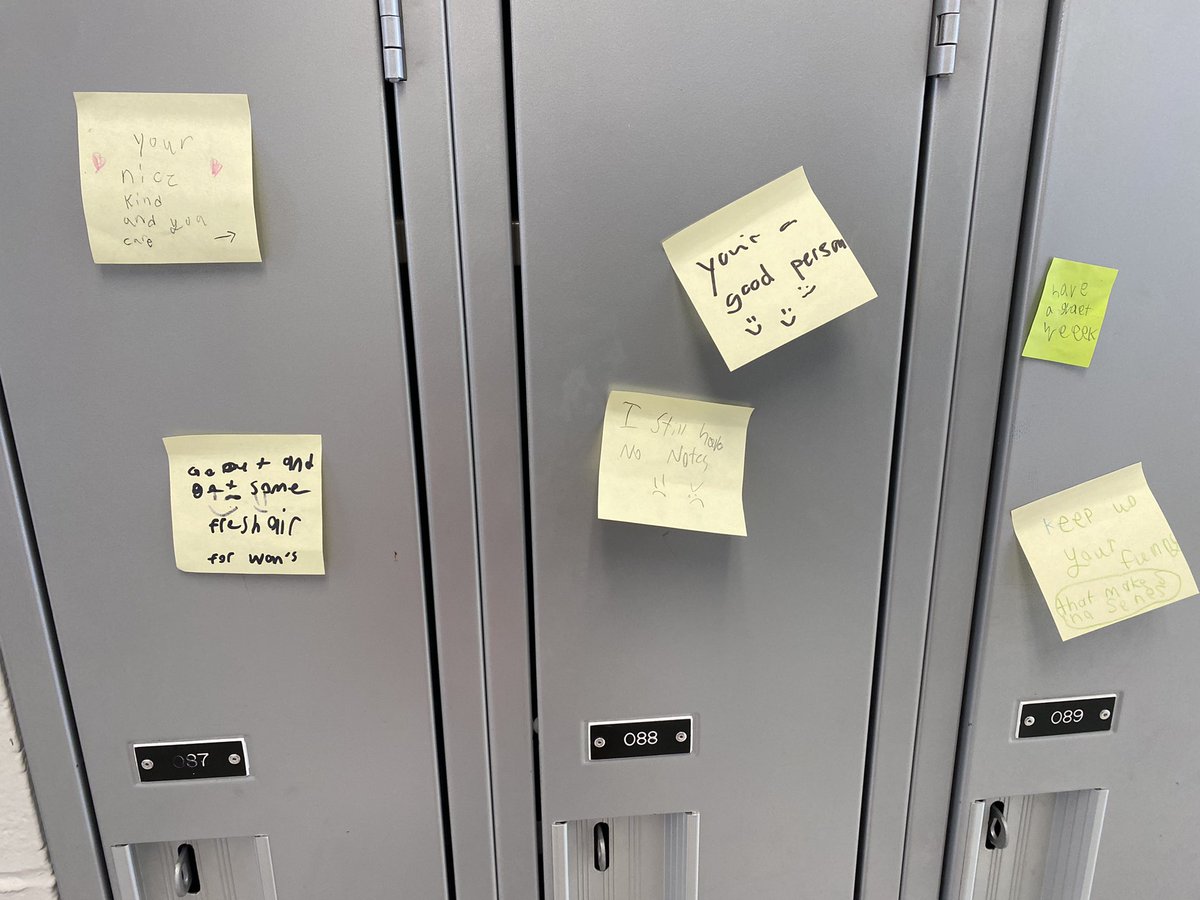 your
nice
kind
and you
care →
and
some
fresh air
for won's
087
your a
good person
I still have
No Notes
088
have
a graet
weeek
keep up
your funny
that make
na senes
089